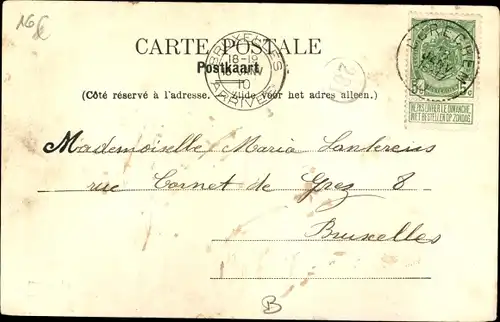 16
CARTE POSTALE
Postkaart
(Côté réservé à l'adresse. — Zijde voor het adres alleen.)
BRUXELLES
18-19
10
ARRIVÉE
BERCHEM
5c 5c
NE PAS LIVRER LE DIMANCHE
NIET BESTELLEN OP ZONDAG
Mademoiselle Maria
rue Cornet de Grez 8
Bruxelles
B